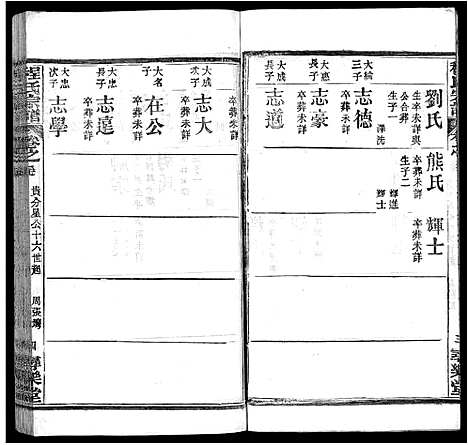 劉氏
生卒未詳與
公合葬
生子一
澤沈
熊氏
卒葬未詳
生子二
輝進
輝士
輝士
卒葬未詳
大綸
三子
志德
卒葬未詳
大惠
長子
志豪
卒葬未詳
大成
長子
志道
卒葬未詳
大成
次子
志大
卒葬未詳
大名
子
在公
卒葬未詳
大忠
長子
志遠
卒葬未詳
大忠
次子
志學
程氏宗譜
貴分星公十六世起
周張灣
尋樂堂